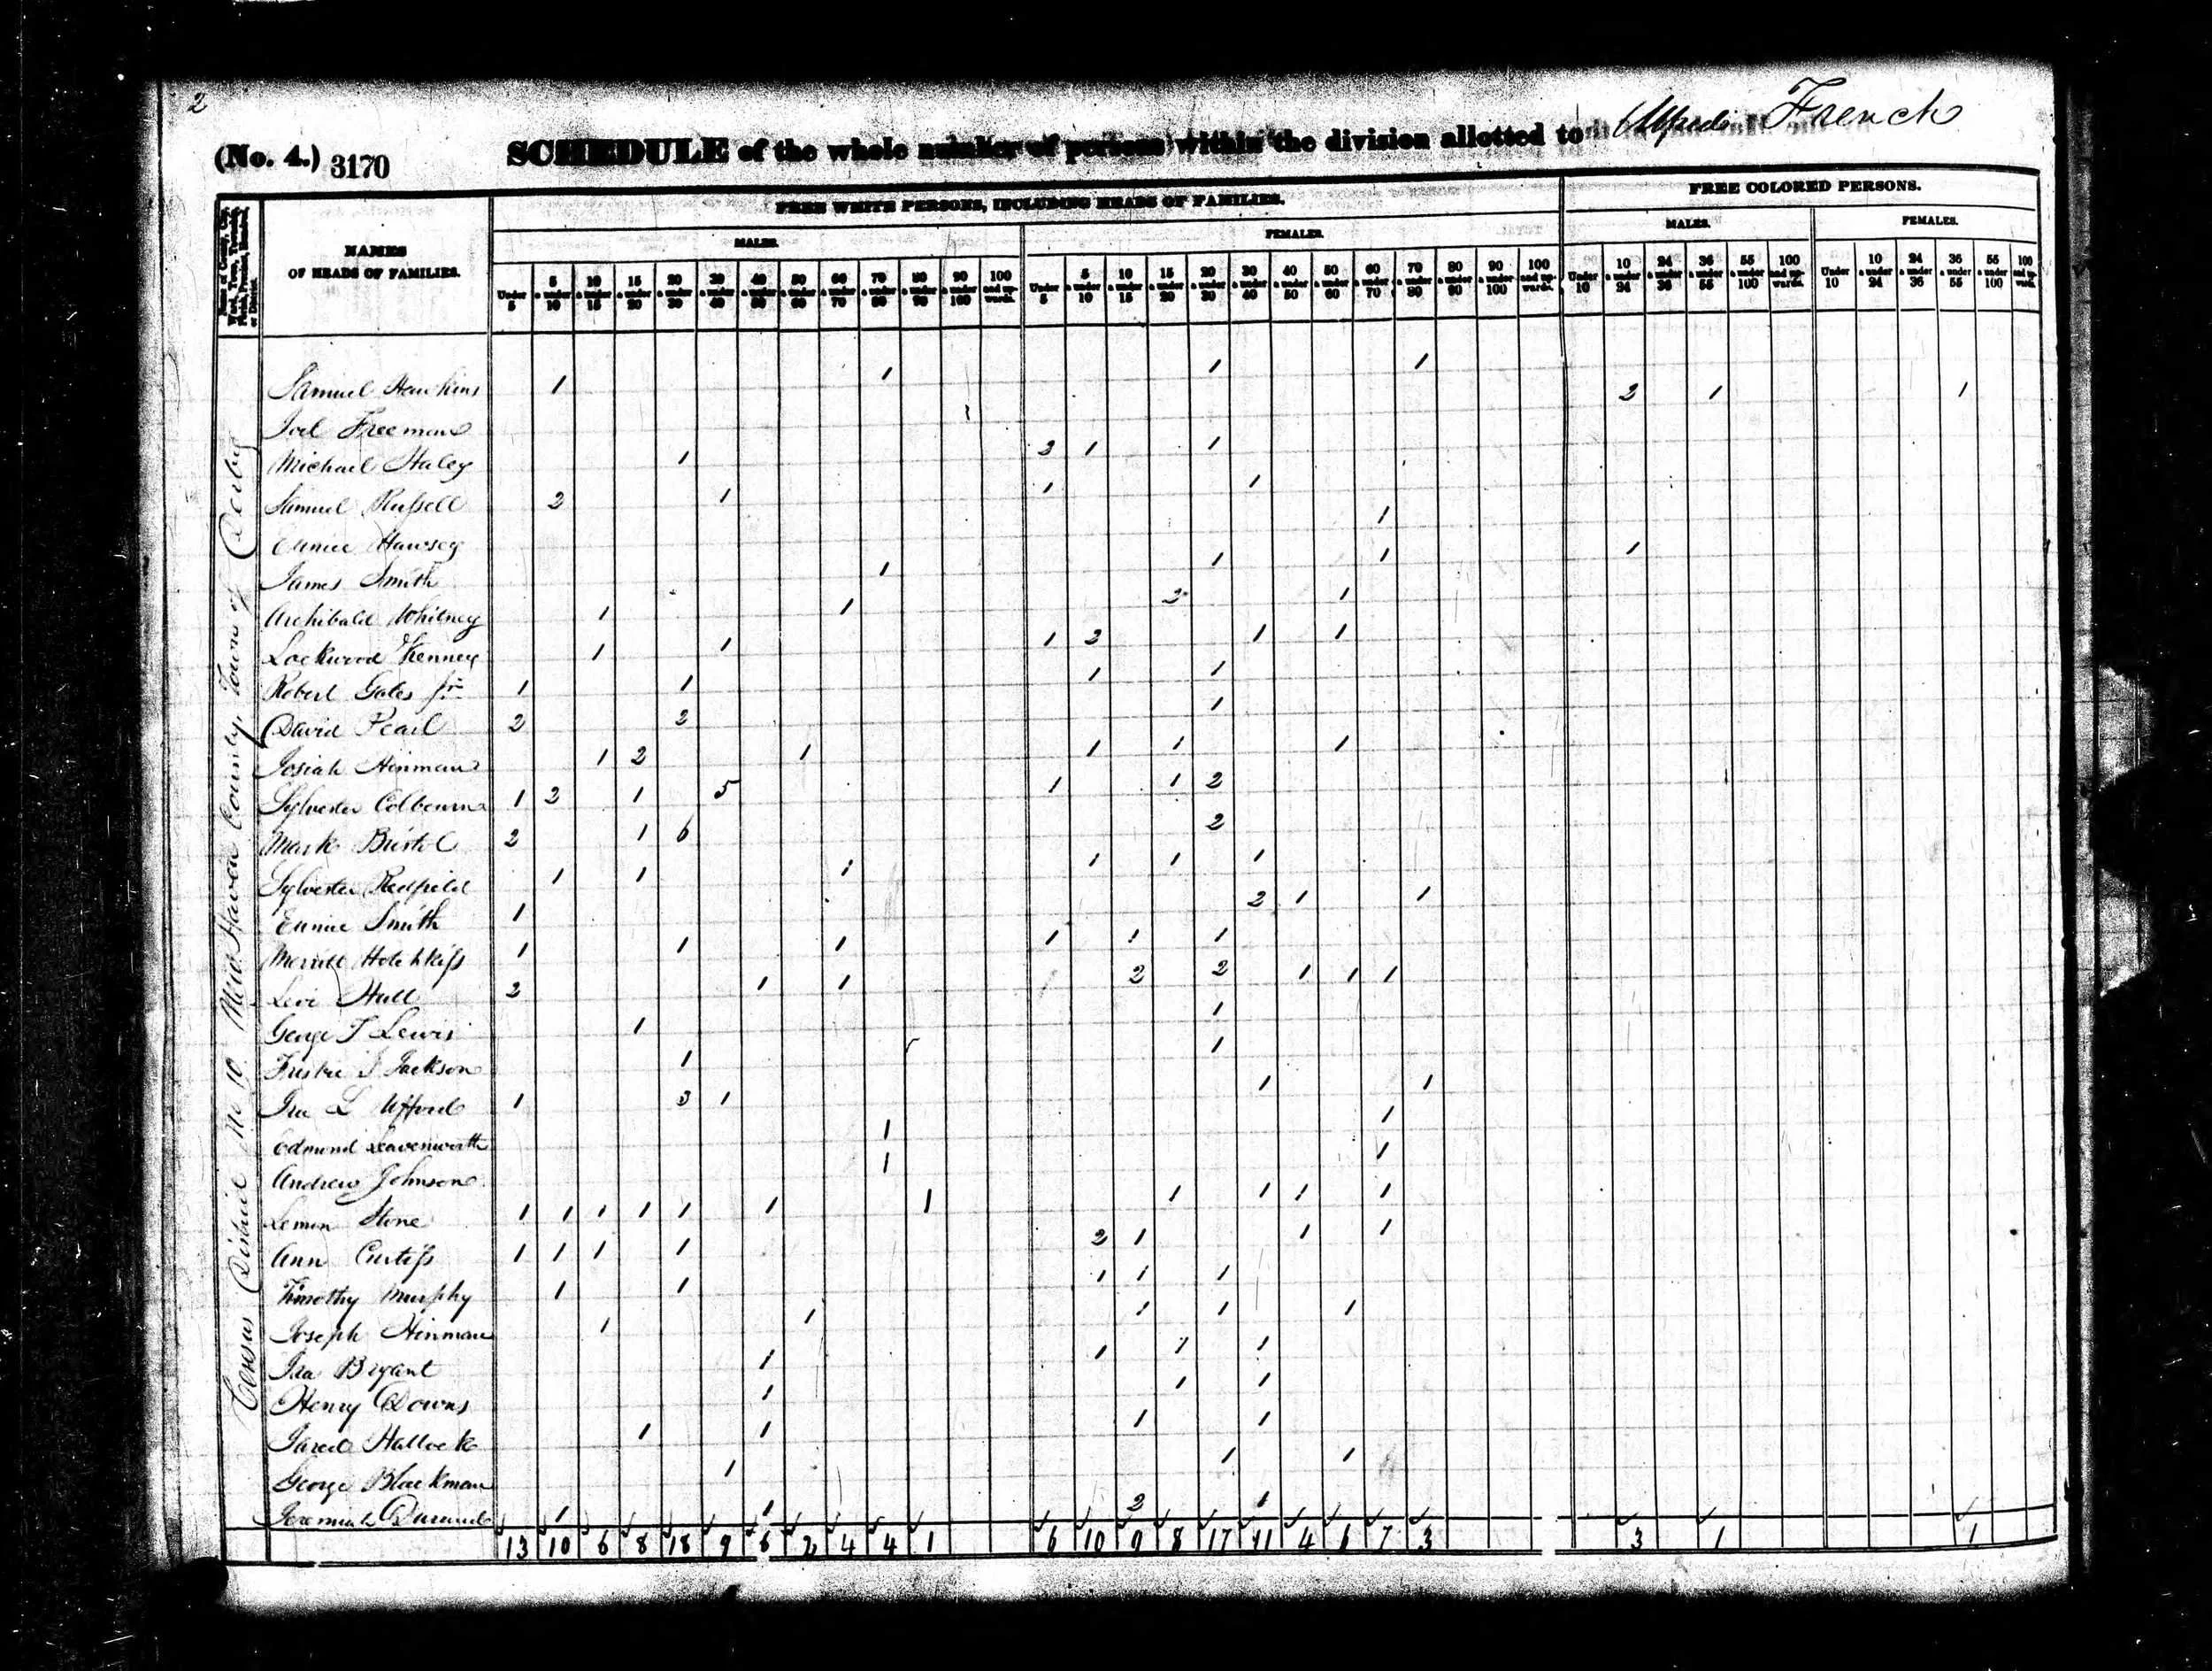 2
(No. 4.) 3170 SCHEDULE of the whole number of persons within the division allotted to Alfred French
FREE WHITE PERSONS, INCLUDING HEADS OF FAMILIES. FREE COLORED PERSONS.
MALES. FEMALES. MALES. FEMALES.
Name of County, City, Ward, Town, Township, Parish, Precinct, Hundred, or District.
NAMES OF HEADS OF FAMILIES.
Under 5 | 5 & under 10 | 10 & under 15 | 15 & under 20 | 20 & under 30 | 30 & under 40 | 40 & under 50 | 50 & under 60 | 60 & under 70 | 70 & under 80 | 80 & under 90 | 90 & under 100 | 100 and upwards. | Under 5 | 5 & under 10 | 10 & under 15 | 15 & under 20 | 20 & under 30 | 30 & under 40 | 40 & under 50 | 50 & under 60 | 60 & under 70 | 70 & under 80 | 80 & under 90 | 90 & under 100 | 100 and upwards. | Under 10 | 10 & under 24 | 24 & under 36 | 36 & under 55 | 55 & under 100 | 100 and upwards. | Under 10 | 10 & under 24 | 24 & under 36 | 36 & under 55 | 55 & under 100 | 100 and upward.
District No 10 New Haven County, Town of Derby
Samuel Hawkins 1 1 1 1
Joel Freeman 2 1 1
Michael Haley 1 3 1 1
Samuel Russell 2 1 1 1
Eunice 1
James Smith 1 1 1 1
Archibald Whitney 1 1 2 1
Lockwood Kenney 1 1 1 2 1 1
Robert Gates Jr 1 1 1 1
David Pearl 2 2 1
Josiah Hinman 1 2 1 1 1 1
Sylvester Colbourn 1 2 1 5 1 1 2
Mark Bristol 2 1 6 2
Sylvester Redfield 1 1 1 1 1 1
Eunice Smith 1 2 1 1
Merritt Hotchkiss 1 1 1 1 1 1
Levi Hull 2 1 1 2 2 1 1 1
George T Lewis 1 1
J Jackson 1 1
Ira L Ufford 1 3 1 1 1
Edmund Leavenworth 1 1
Andrew Johnson 1 1
Lemon Stone 1 1 1 1 1 1 1 1 1 1 1
Ann Curtiss 1 1 1 1 2 1 1 1
Timothy Murphy 1 1 1 1 1
Joseph Hinman 1 1 1 1 1
Ira Bryant 1 1 1 1
Henry Downs 1 1 1
Jared Hallock 1 1 1 1
George Blackman 1 1 1
Jeremiah Durand 1 1 2 1
13 10 6 8 18 9 6 2 4 4 1 6 10 9 8 17 11 4 6 7 3 3 1 1